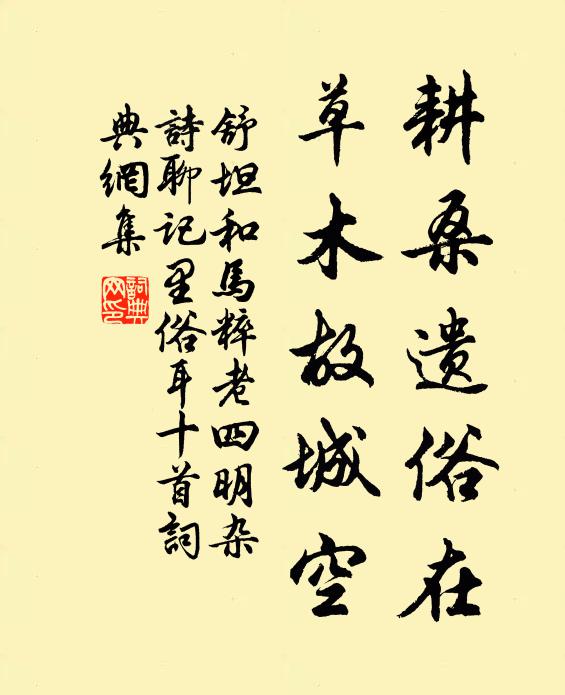 耕桑遗俗在
草木故城空
舒坦和馬粹老四明杂
詩聊记里俗耳十首詞
典網集
詞典
网印